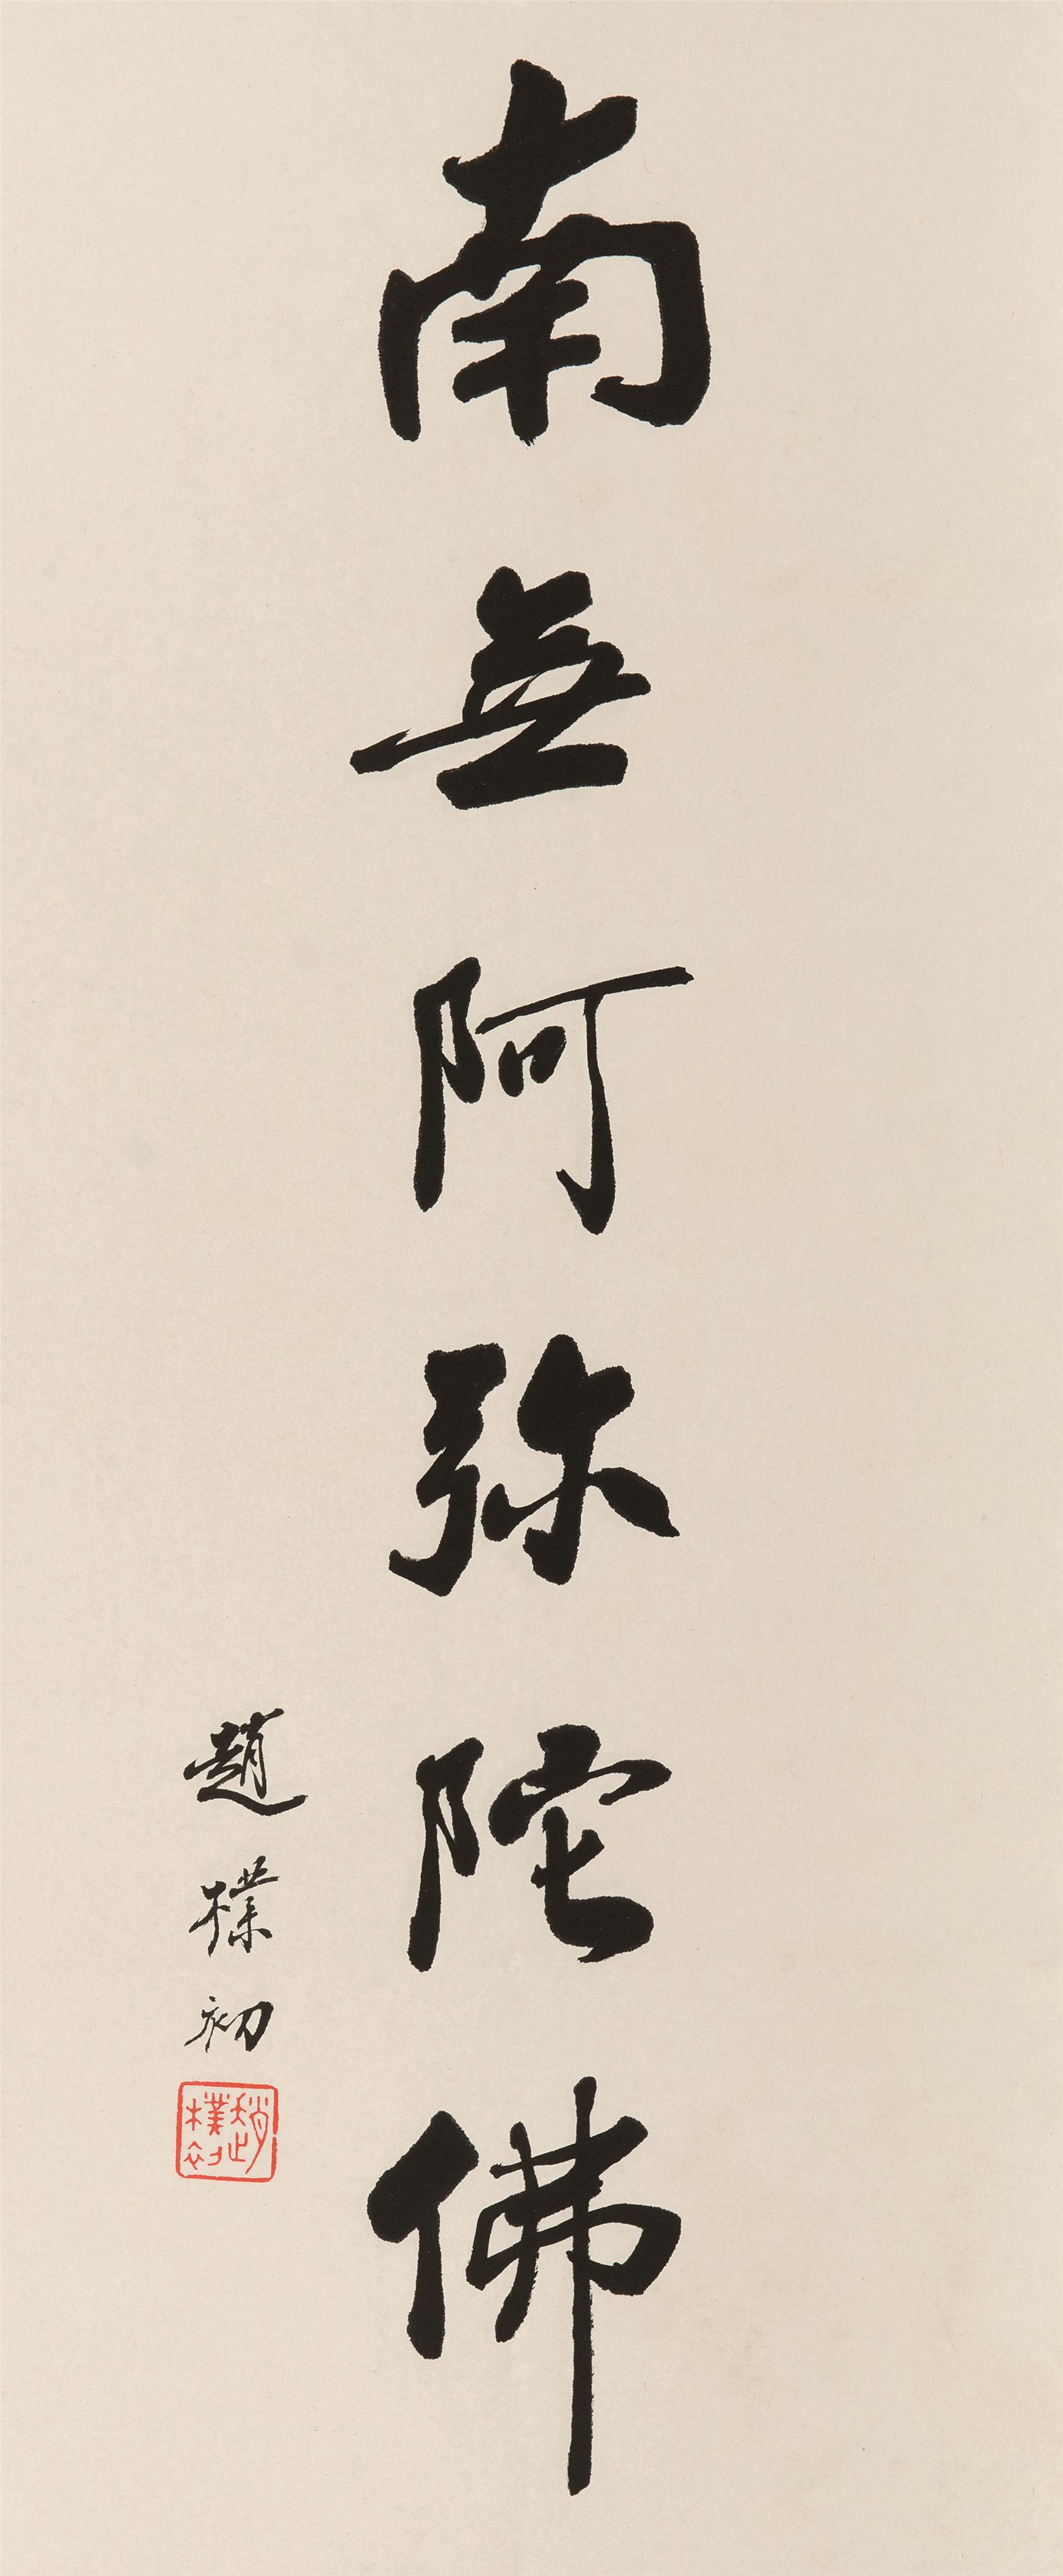 南無阿弥陀佛
趙樸初
趙樸初